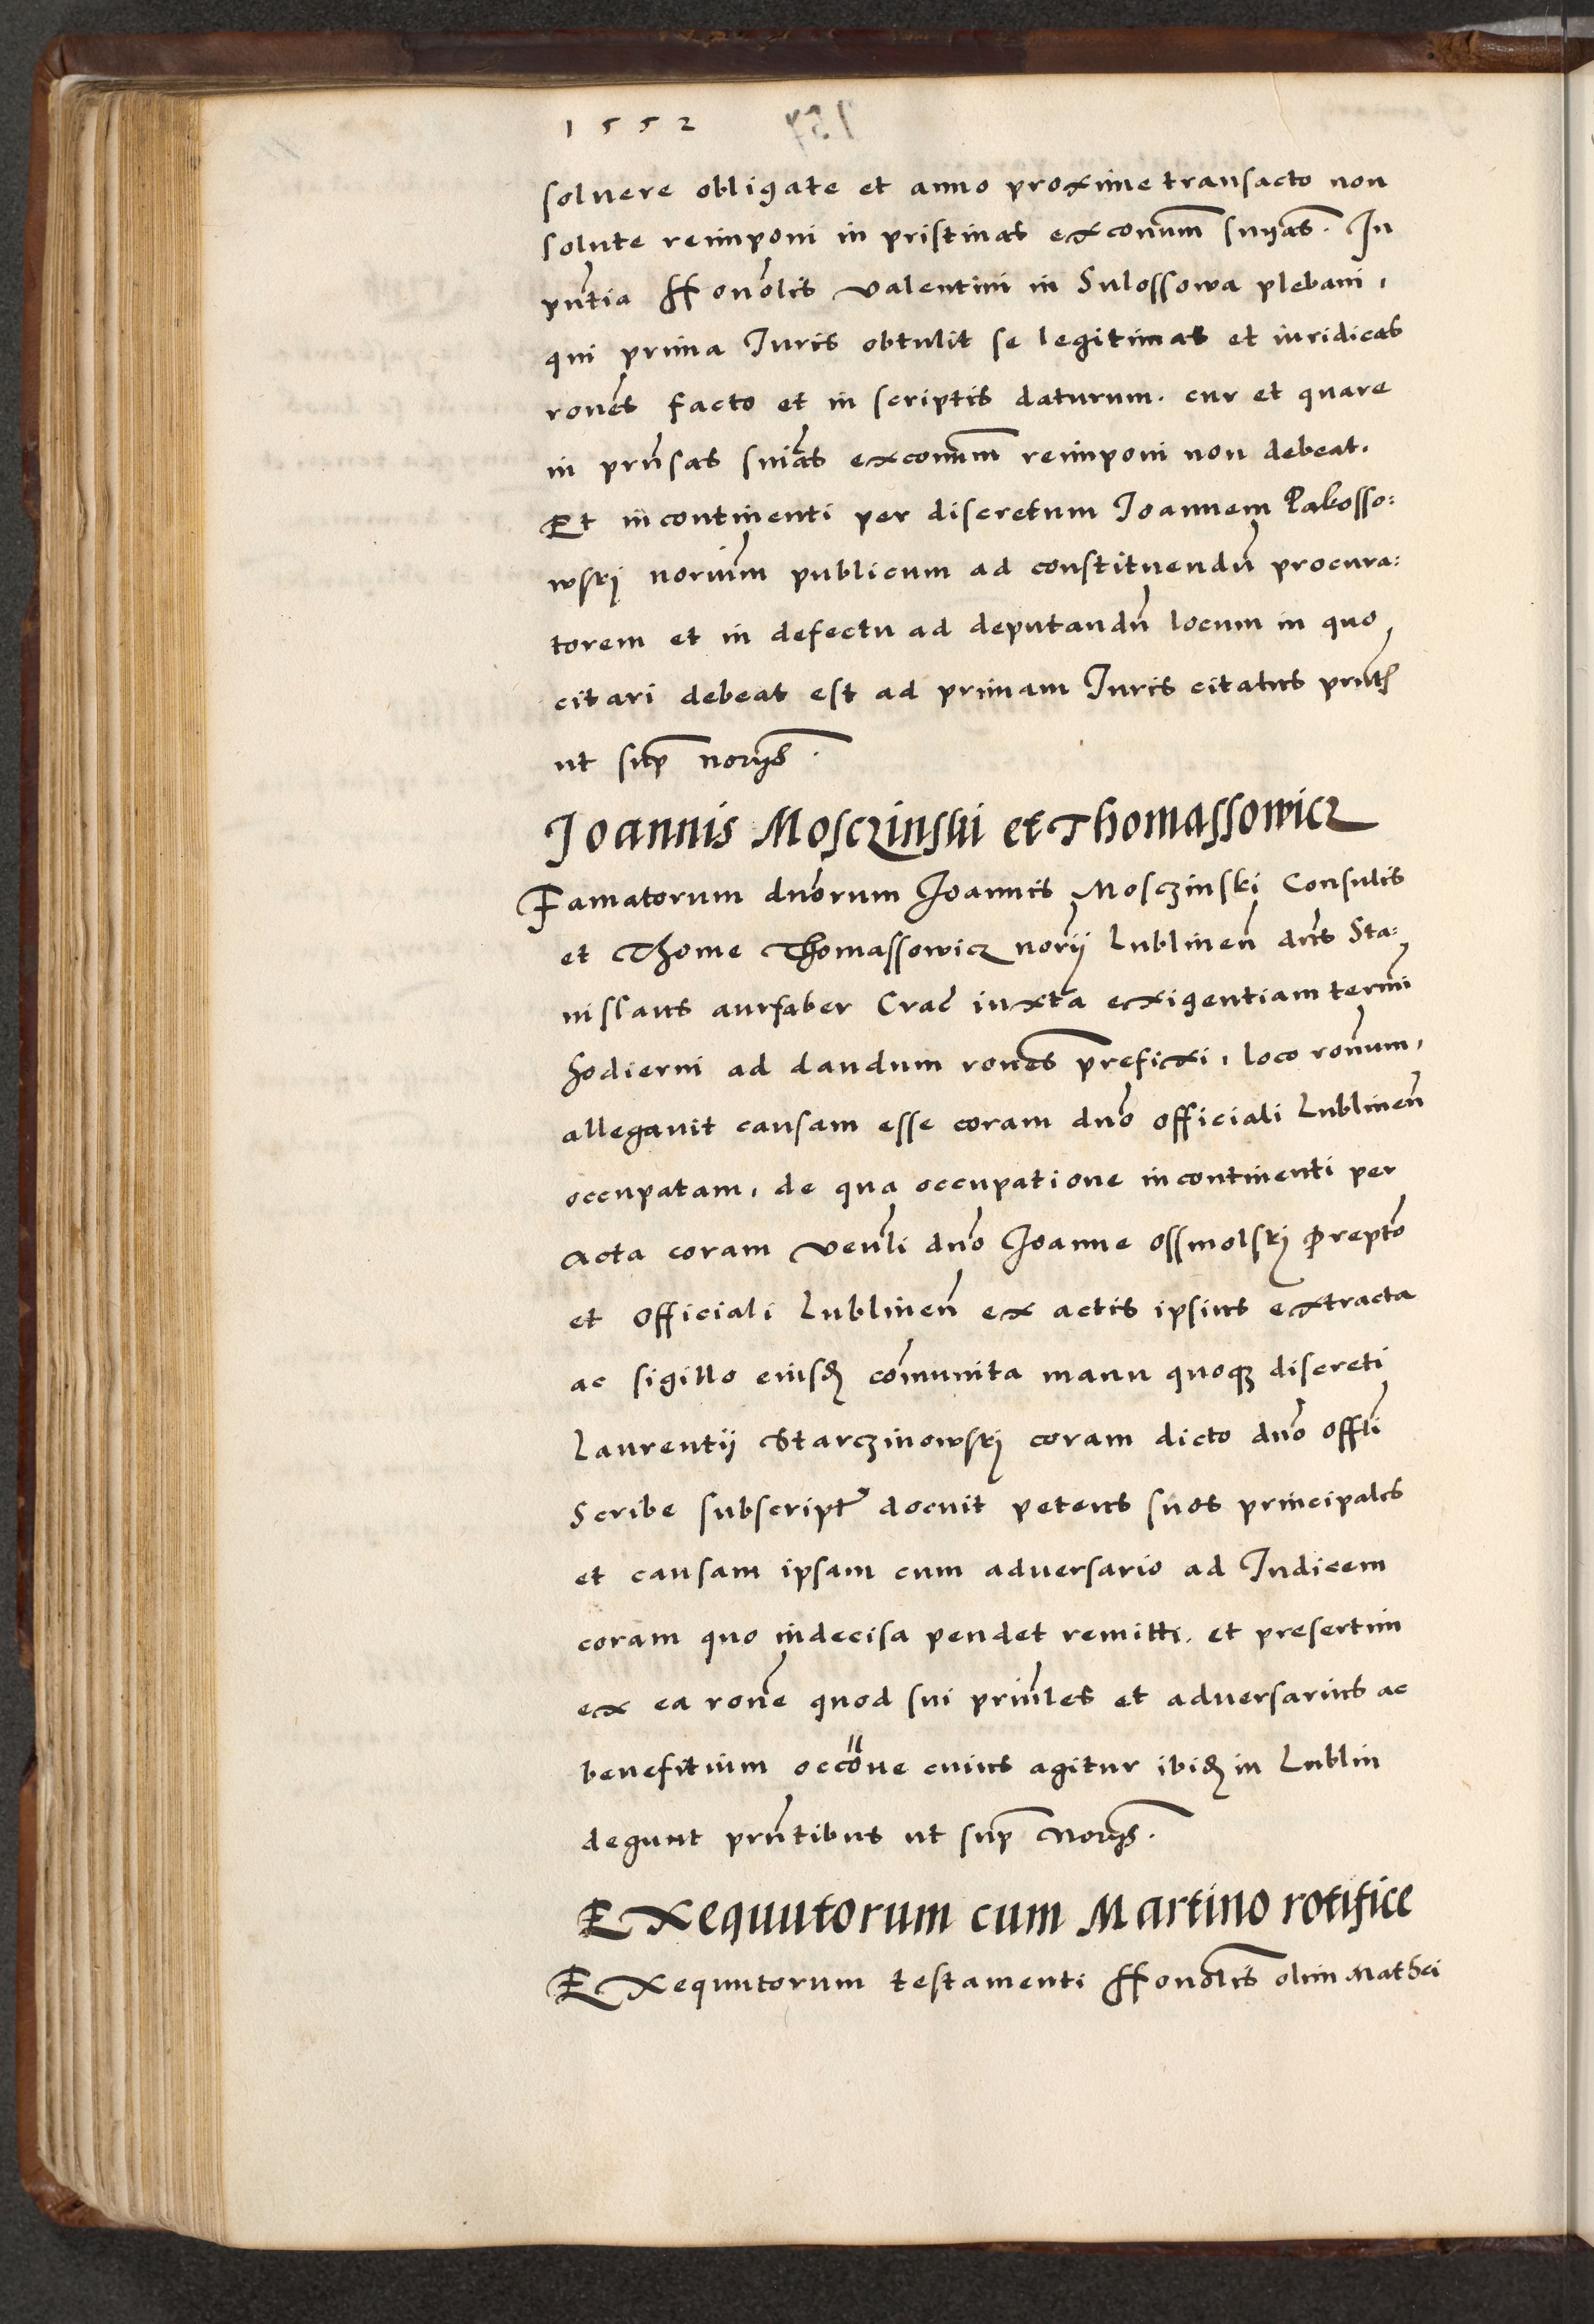 1552
soluere obligate et anno proxime transacto non
solute reimponi in pristinas exconum̄ snÿas. In
pn̄tia Honōlis valentini in Sulossowa plebani,
qui prima Iuris obtulit se legitimas et iuridicas
ronēs facto et in scriptis daturum. cur et quare
in prn̄sas snīas exconum̄ reimponi non debeat.
Et incontinenti per discretum Joannem Pakosso:
wskj noriūm publicum ad constituendū procura:
torem et in defectu ad deputandū locum in quo
citari debeat est ad primam Iuris citatus prn̄t
ut sup̄ norÿs.
Joannis Mosczinski et Thomassowicz
Famatorum dnōrum Joannis Mosczinski Consulis
et Thome Thomassowicz norÿ Lublinen̄ dn̄s Sta:
nislaus aurfaber Crac̄ iuxta exigentiam termī
hodierni ad dandum ronēs prefixi, loco ronūm,
allegauit causam esse coram dnō officiali Lublinen̄
occupatam, de qua occupatione incontinenti per
Acta coram venlī dnō Joanne ossmolskj Preptō
et Officiali Lublinen̄ ex actis ipsius extracta
ac sigillo eiusd comūnita manu quoq discreti
Laurentij Starczinowskj coram dicto dnō Offlī
Scribe subscript docuit petens suos principales
et causam ipsam cum aduersario ad Iudicem
coram quo indecisa pendet remitti. et presertim
ex ea ronē quod sui prinl̄es et aduersarius ac
benefitium occōne cuius agitur ibid in Lublin
degunt prn̄tibus ut sup̄ Norÿs.
Exequutorum cum Martino rotifice
Exequutorum testamenti Honōlis olim Mathei